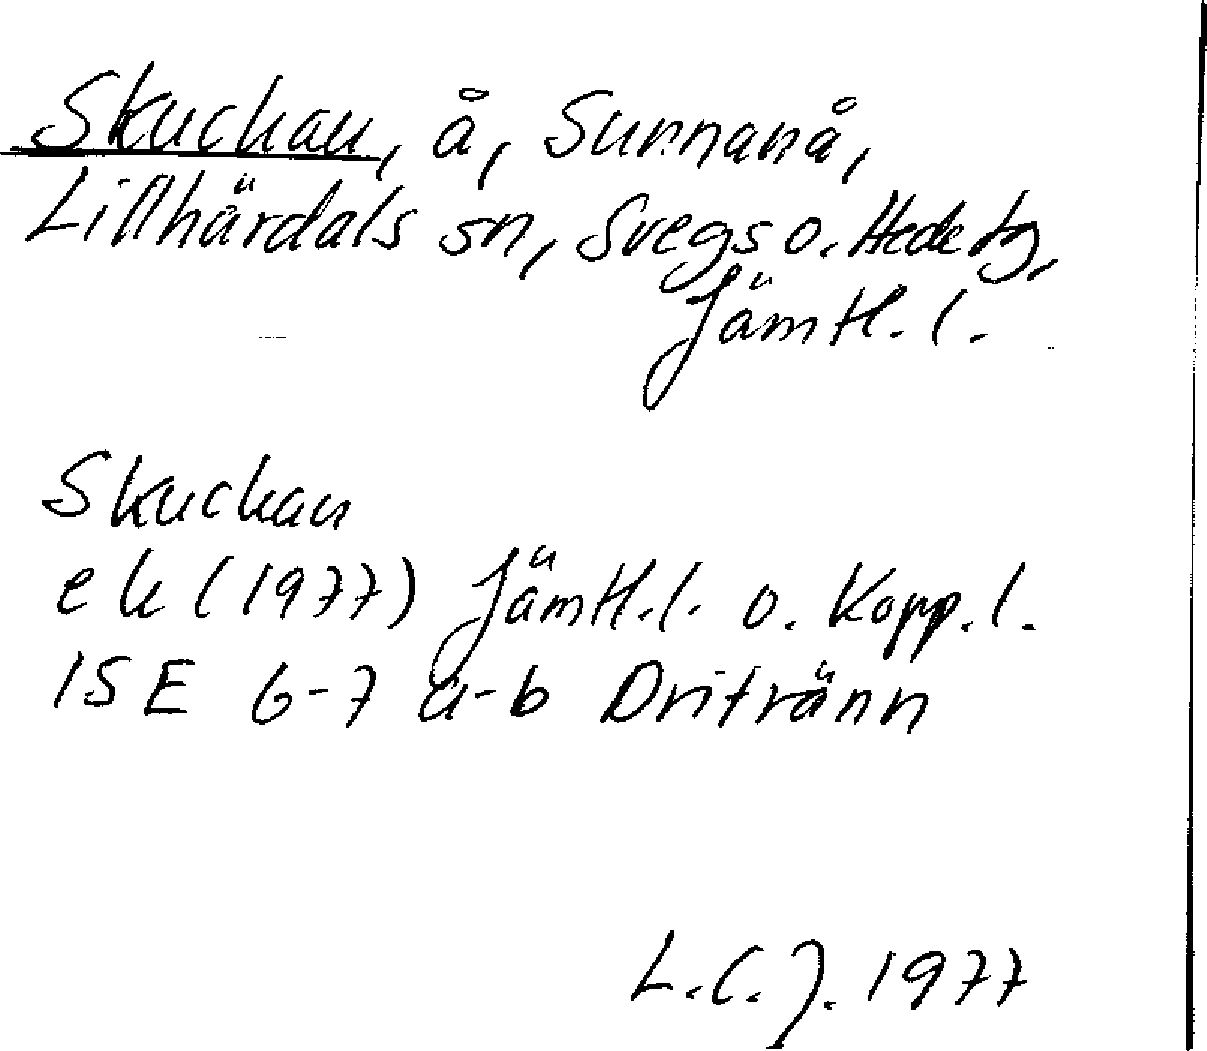 Skuckau, å, Sunnanå,
Lillhärdals sn, Svegs o. Hede tg,
Jämtl. l.
Skuckan
ek (1977) Jämtl.l. o. Kopp.l.
15 E 6-7 a-b Dritränn
L.C.J. 1977